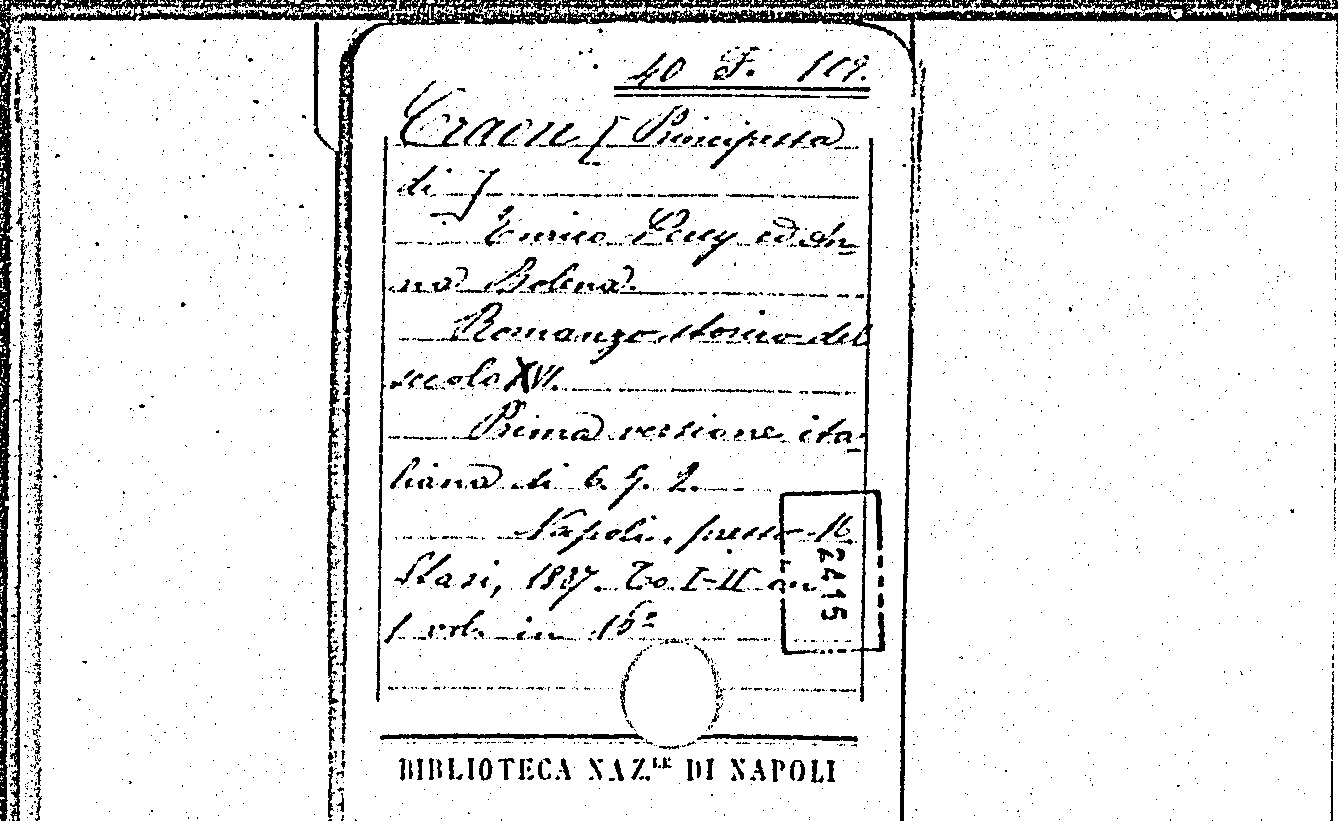 40 F. 119.
Craon [Principessa
di]
Enrico Percy ed An=
na Bolena.
Romanzo storico del
secolo XVI.
Prima versione ita=
liana di G. L.
Napoli, presso R.
Stasi, 1837. To I-II in
1 vol. in 16º
2415
BIBLIOTECA NAZ.LE DI NAPOLI